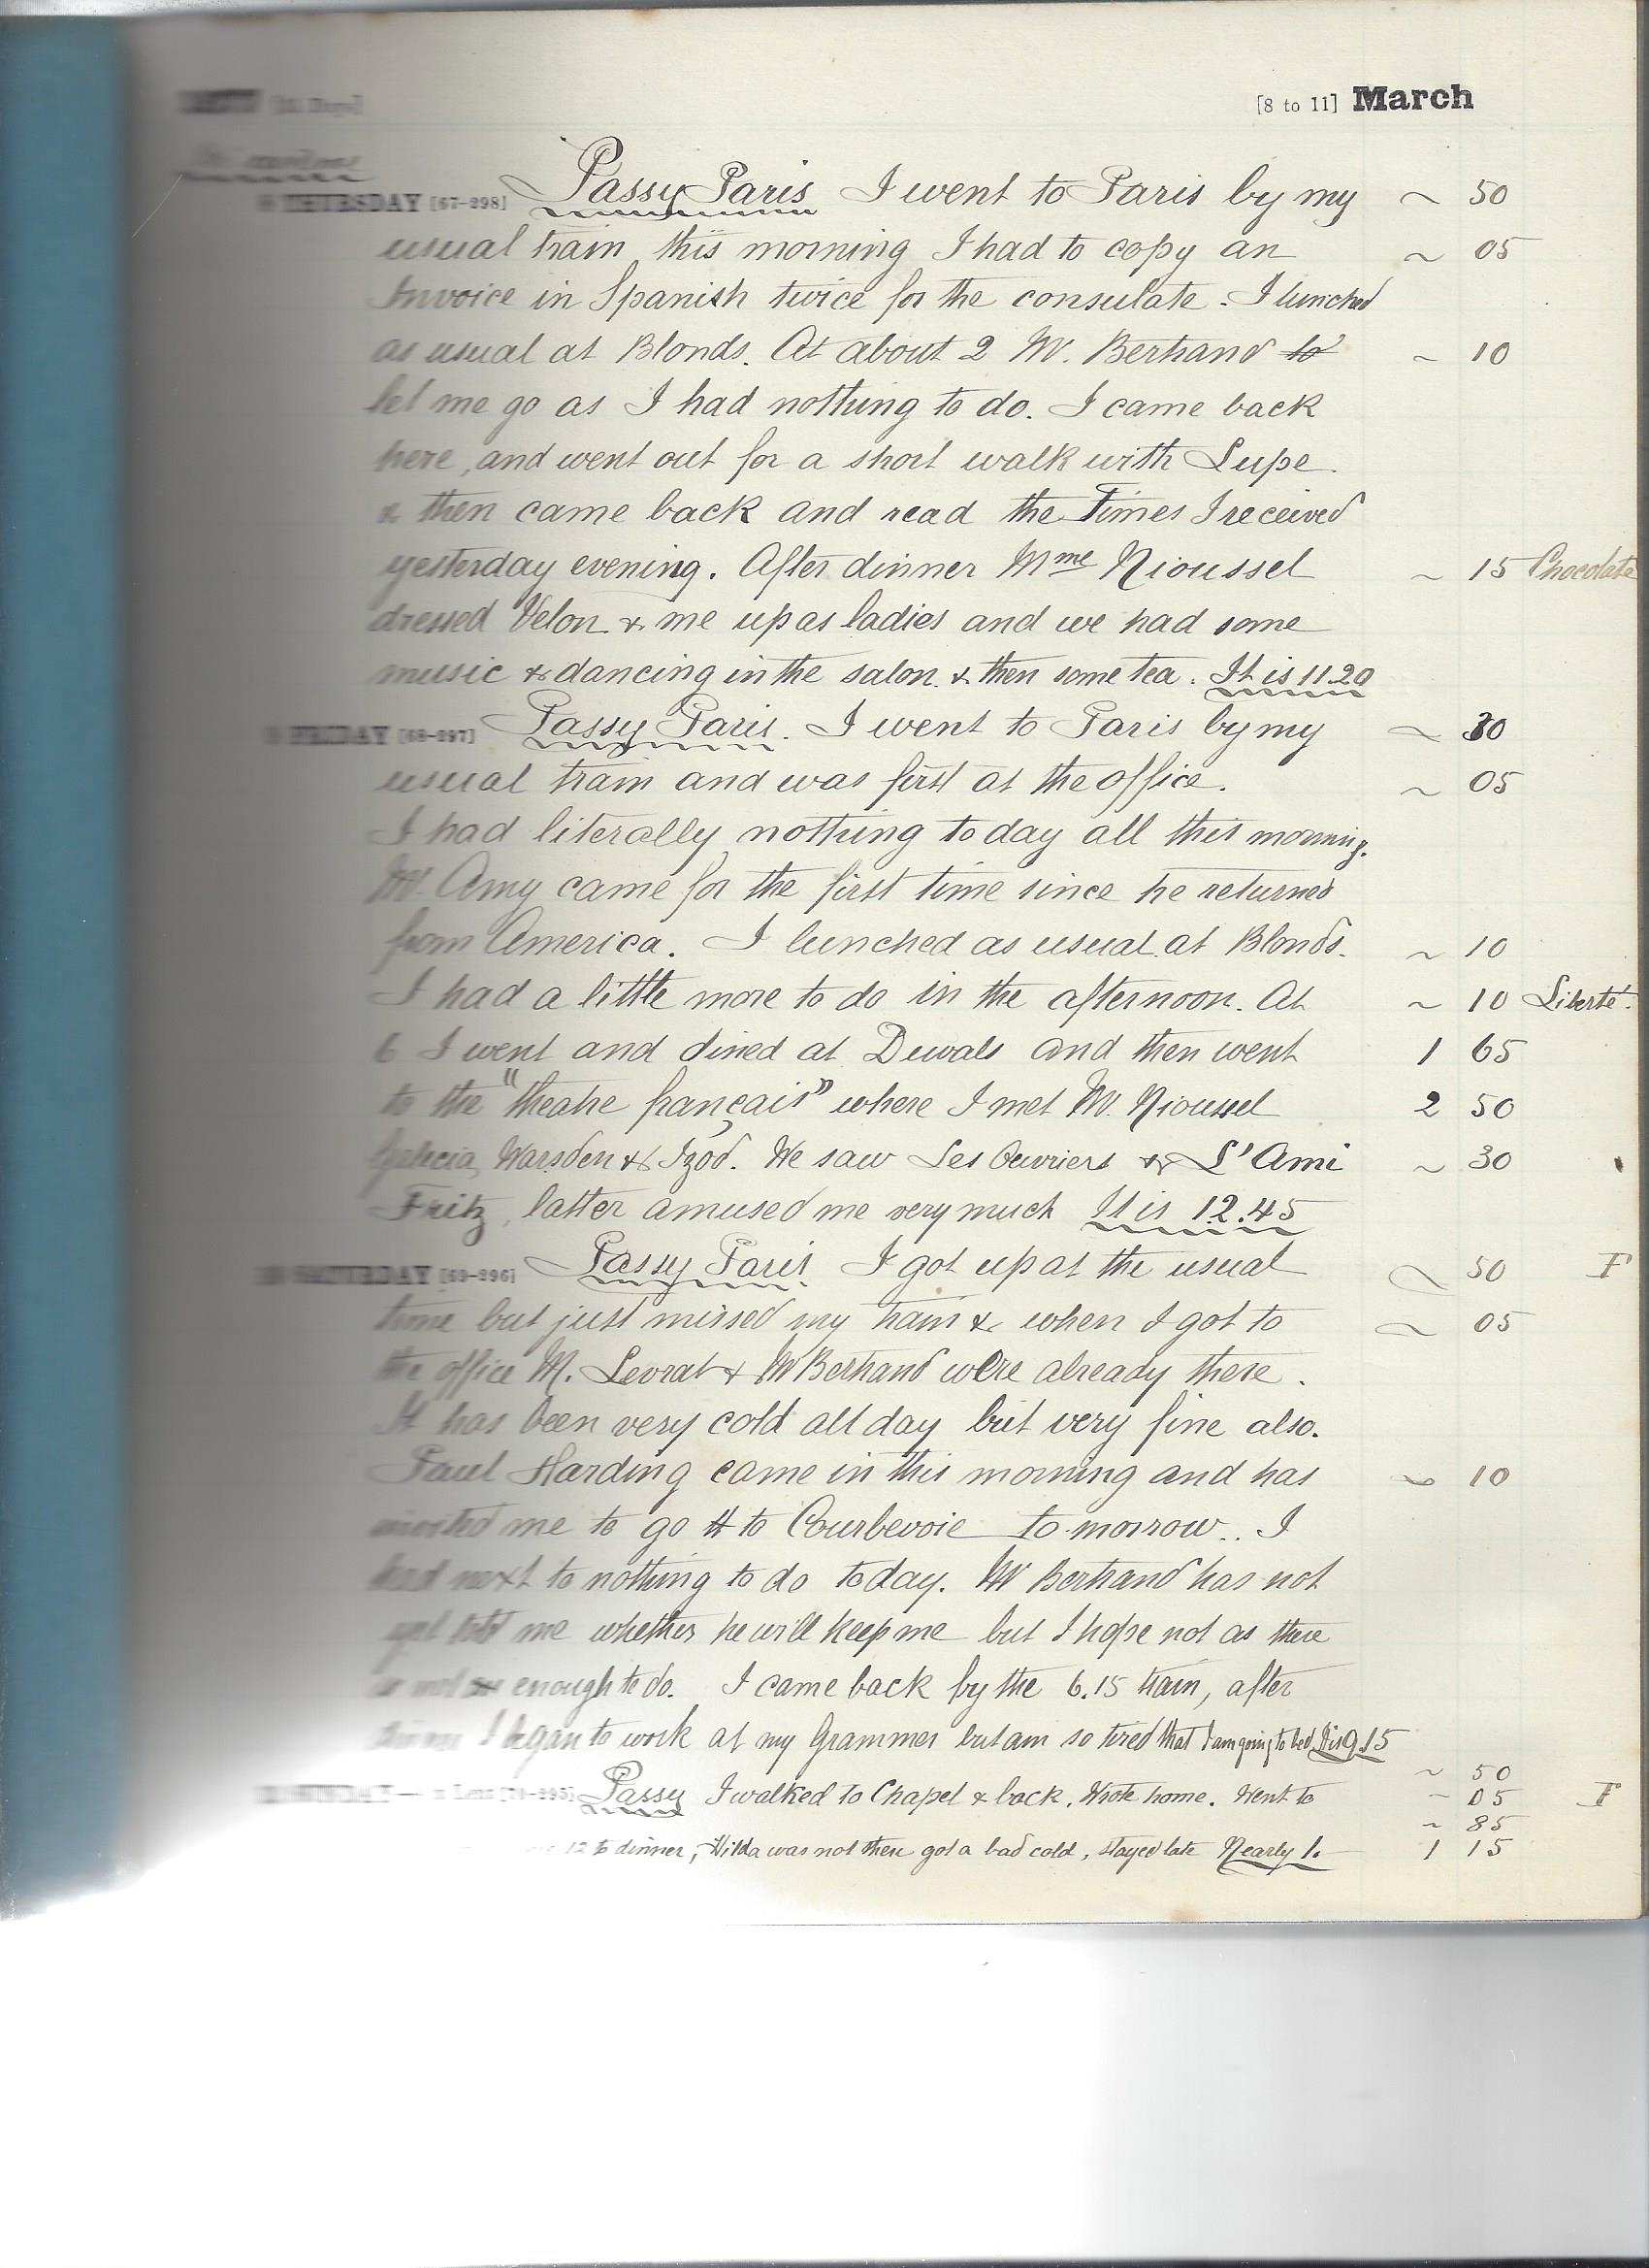 [8 to 11] March
THURSDAY [67-298] Passy Paris I went to Paris by my ~ 50
usual train this morning I had to copy an ~ 05
Invoice in Spanish twice for the consulate. I lunched
as usual at Blonds. At about 2 M. Bertrand to ~ 10
let me go as I had nothing to do. I came back
here, and went out for a short walk with Lupe.
& then came back and read the Times I received
yesterday evening. After dinner Mme Nioussel ~ 15 Chocolate
dressed Velon & me up as ladies and we had some
music & dancing in the salon & then some tea. It is 11.20
FRIDAY [68-297] Passy Paris. I went to Paris by my ~ 30
usual train and was first at the office. ~ 05
I had literally nothing to day all this morning.
M. Amy came for the first time since he returned
from America. I lunched as usual at Blonds. ~ 10
I had a little more to do in the afternoon. At ~ 10 Liberté.
6 I went and dined at Duvals and then went 1 65
to the "theatre français" where I met M. Nioussel 2 50
Marsden & Izod. We saw Les Ouvriers & L'Ami ~ 30
Fritz, latter amused me very much It is 12.45
SATURDAY [69-296] Passy Paris. I got up at the usual ~ 50 F
time but just missed my train & when I got to ~ 05
the office M. Levrat & M Bertrand were already there.
It has been very cold all day but very fine also.
Paul Harding came in this morning and has ~ 10
invited me to go to Courbevoie to-morrow. I
had next to nothing to do today. M Bertrand has not
yet told me whether he will keep me but I hope not as there
is not enough to do. I came back by the 6.15 train, after
dinner I began to work at my Grammer but am so tired that I am going to bed It is 9.15
~ 50
SUNDAY [70-295] Passy I walked to Chapel & back. Wrote home. Went to ~ 05 F
~ 85
12 to dinner, Hilda was not there got a bad cold, stayed late Nearly 1. 1 15